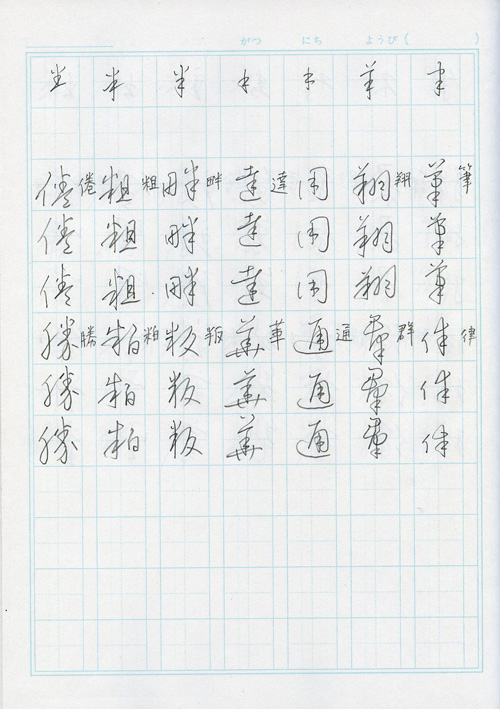 がつ にち ようび( )
筆筆筆筆律律律律
羊翔翔翔翔群群群群
周周周通通通通
達達達達華華華華
半畔畔畔畔叛叛叛叛
粗粗粗粗粕粕粕粕
倦倦倦倦勝勝勝勝